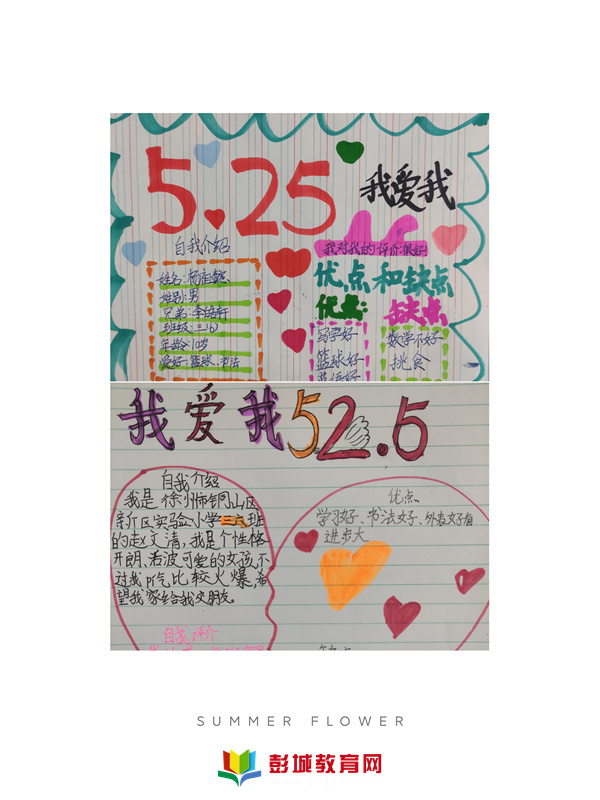 5.25
我爱我
自我介绍
姓名:杨
性别:男
兄弟:李
班级:三(6)
年龄:10岁
爱好:篮球、书法
我对我的评价很好
优点和缺点
优点:
写字好
篮球好
英语好
缺点
数学不好
挑食
我爱我5.25
自我介绍
我是徐州市铜山区
新区实验小学三六班
的赵文清,我是个性格
开朗、活波可爱的女孩,不
过我pi气比较火爆,希
望我家给我交朋友。
自我评价
优点
学习好、书法好、外表文子有
进步大
SUMMER FLOWER
彭城教育网